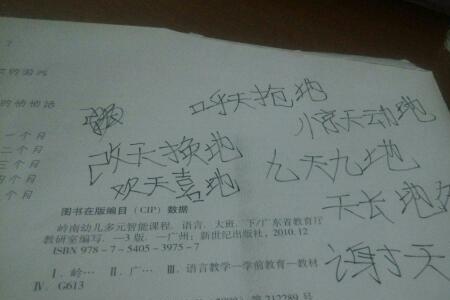 的游戏
的悄悄话
一个月
二个月
三个月
四个月
个月
呼天抢地
惊天动地
改天换地
九天九地
欢天喜地
天长地
谢天
图书在版编目（CIP）数据
岭南幼儿多元智能课程．语言．大班．下/广东省教育厅
教研室编写．—3版．—广州：新世纪出版社，2010.12
ISBN 978-7-5405-3975-7
Ⅰ．岭… Ⅱ．广… Ⅲ．语言教学—学前教育—教材
Ⅳ．G613
212289号